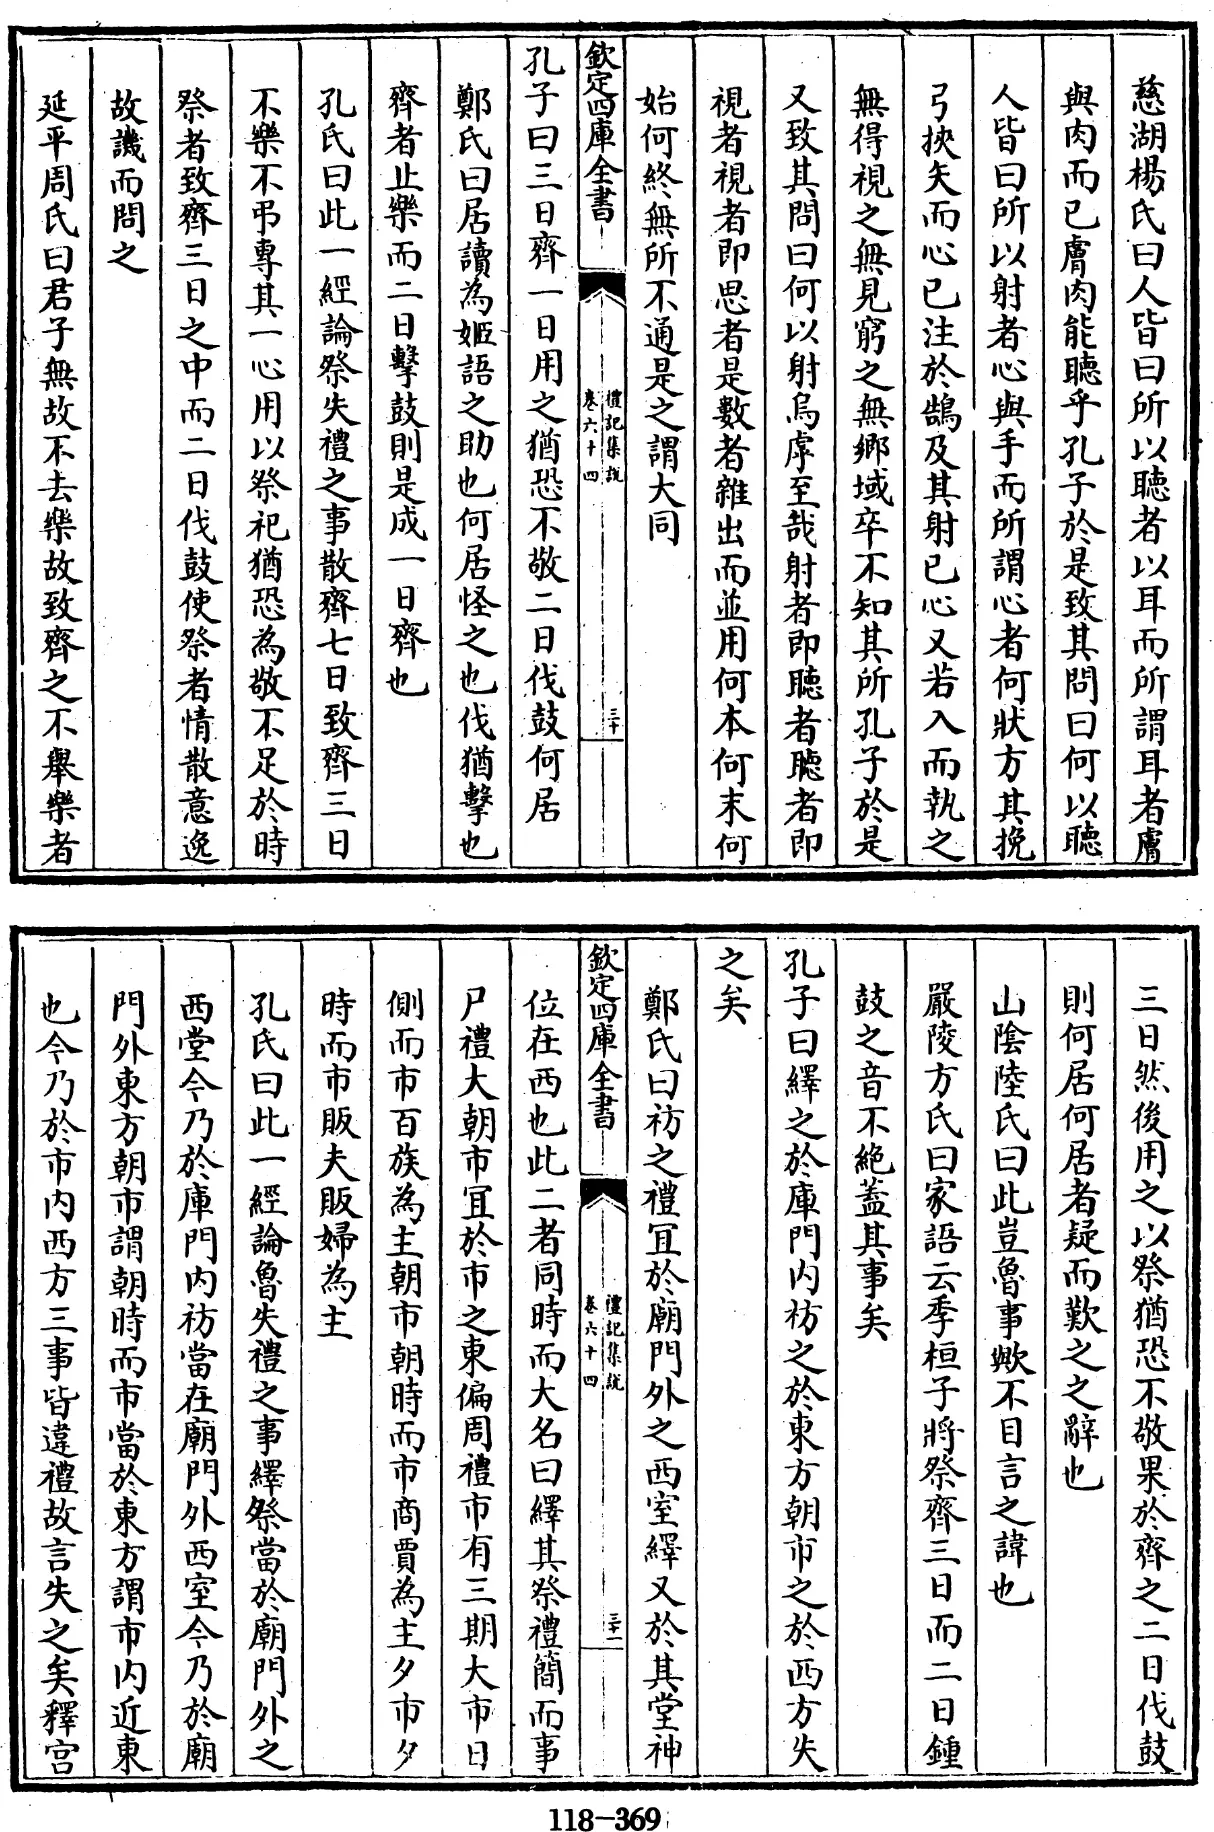 慈湖楊氏曰人皆曰所以聽者以耳而所謂耳者膚
與肉而已膚肉能聽乎孔子於是致其問曰何以聽
人皆曰所以射者心與手而所謂心者何狀方其挽
弓挾矢而心已注於鵠及其射已心又若入而執之
無得視之無見窮之無鄉域卒不知其所孔子於是
又致其問曰何以射烏虖至哉射者即聽者聽者即
視者視者即思者是數者雜出而並用何本何末何
始何終無所不通是之謂大同
欽定四庫全書
禮記集說
卷六十四
三十
孔子曰三日齊一日用之猶恐不敬二日伐鼓何居
鄭氏曰居讀為姬語之助也何居怪之也伐猶擊也
齊者止樂而二日擊鼓則是成一日齊也
孔氏曰此一經論祭失禮之事散齊七日致齊三日
不樂不弔專其一心用以祭祀猶恐為敬不足於時
祭者致齊三日之中而二日伐鼓使祭者情散意逸
故譏而問之
延平周氏曰君子無故不去樂故致齊之不舉樂者
三日然後用之以祭猶恐不敬果於齊之二日伐鼓
則何居何居者疑而歎之之辭也
山陰陸氏曰此豈魯事歟不目言之諱也
嚴陵方氏曰家語云季桓子將祭齊三日而二日鍾
鼓之音不絶蓋其事矣
孔子曰繹之於庫門內祊之於東方朝市之於西方失
之矣
鄭氏曰祊之禮宜於廟門外之西室繹又於其堂神
欽定四庫全書
禮記集說
卷六十四
三十一
位在西也此二者同時而大名曰繹其祭禮簡而事
尸禮大朝市宜於市之東偏周禮市有三期大市日
側而市百族為主朝市朝時而市商賈為主夕市夕
時而市販夫販婦為主
孔氏曰此一經論魯失禮之事繹祭當於廟門外之
西堂今乃於庫門內祊當在廟門外西室今乃於廟
門外東方朝市謂朝時而市當於東方謂市內近東
也今乃於市內西方三事皆違禮故言失之矣釋宮
118-369